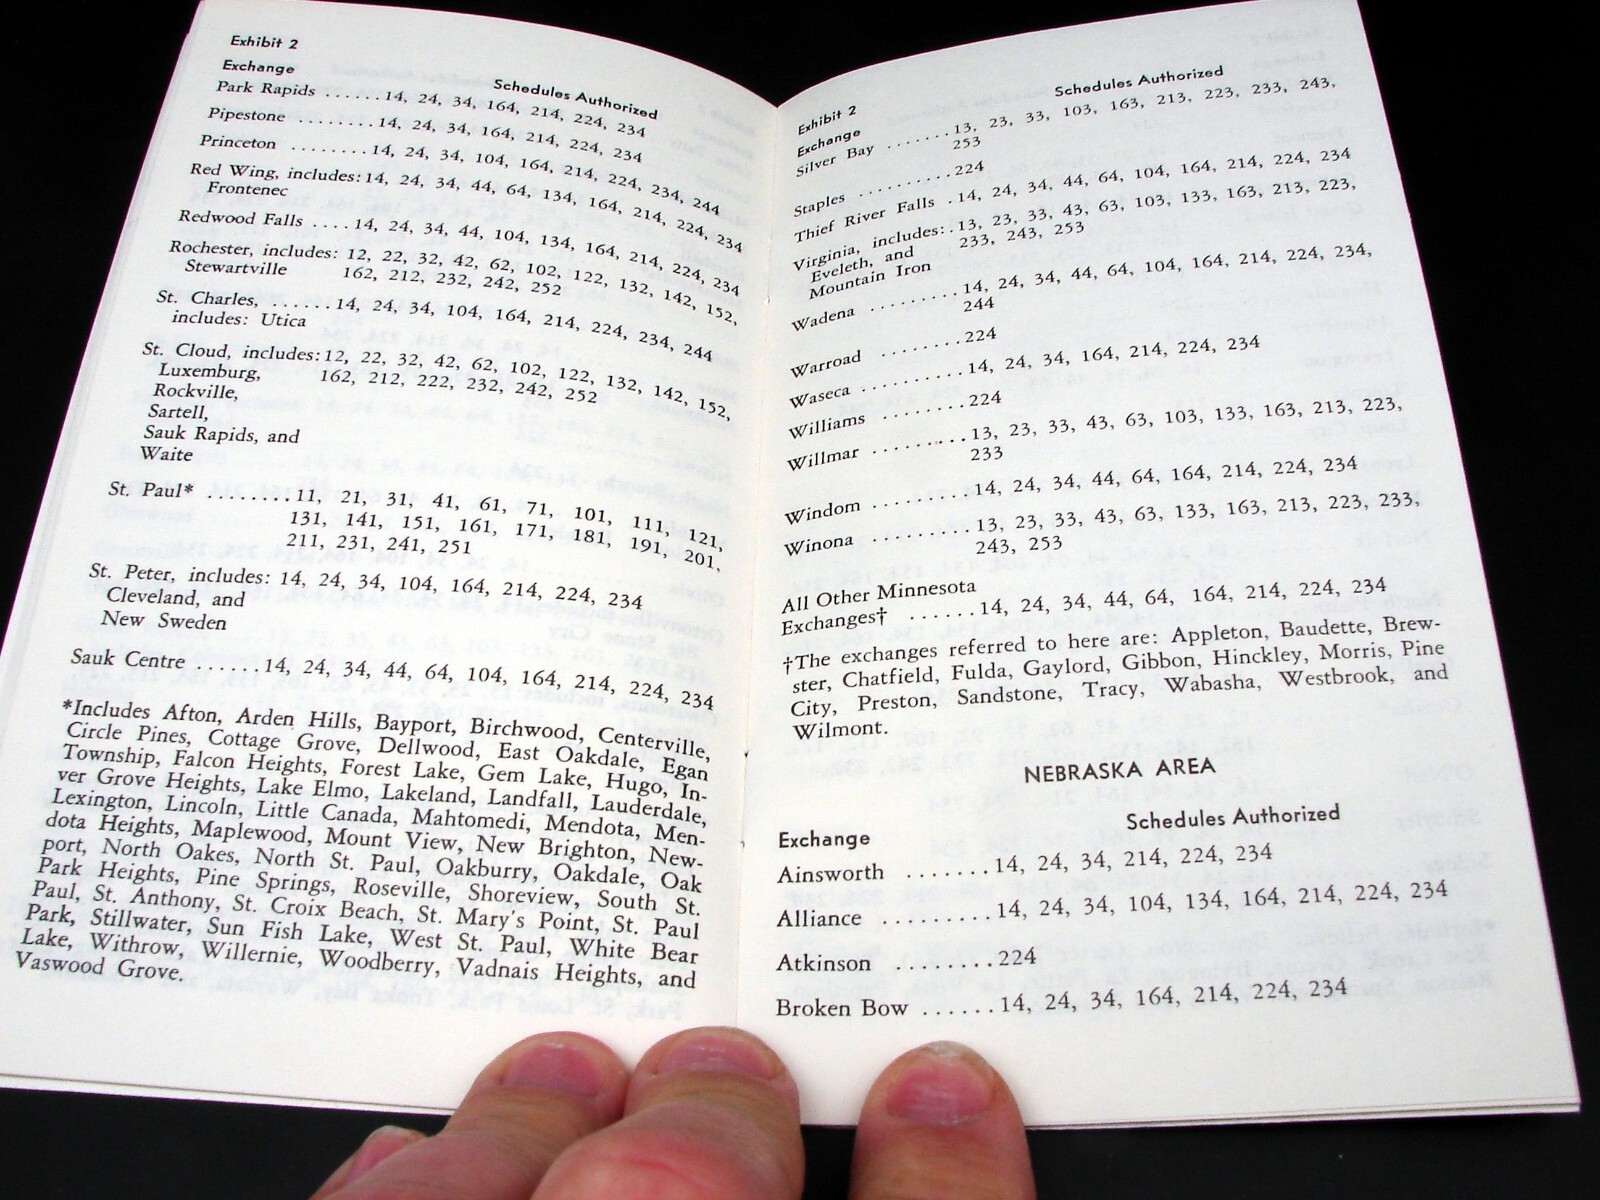 Exhibit 2
Exchange Schedules Authorized
Park Rapids ......14, 24, 34, 164, 214, 224, 234
Pipestone ........14, 24, 34, 164, 214, 224, 234
Princeton ........14, 24, 34, 104, 164, 214, 224, 234, 244
Red Wing, includes: 14, 24, 34, 44, 64, 134, 164, 214, 224, 234
Frontenec
Redwood Falls ....14, 24, 34, 44, 104, 134, 164, 214, 224, 234
Rochester, includes: 12, 22, 32, 42, 62, 102, 122, 132, 142, 152,
Stewartville 162, 212, 232, 242, 252
St. Charles, .......14, 24, 34, 104, 164, 214, 224, 234, 244
includes: Utica
St. Cloud, includes: 12, 22, 32, 42, 62, 102, 122, 132, 142, 152,
Luxemburg, 162, 212, 222, 232, 242, 252
Rockville,
Sartell,
Sauk Rapids, and
Waite
St. Paul* .........11, 21, 31, 41, 61, 71, 101, 111, 121,
131, 141, 151, 161, 171, 181, 191, 201,
211, 231, 241, 251
St. Peter, includes: 14, 24, 34, 104, 164, 214, 224, 234
Cleveland, and
New Sweden
Sauk Centre .......14, 24, 34, 44, 64, 104, 164, 214, 224, 234
*Includes Afton, Arden Hills, Bayport, Birchwood, Centerville,
Circle Pines, Cottage Grove, Dellwood, East Oakdale, Egan
Township, Falcon Heights, Forest Lake, Gem Lake, Hugo, In-
ver Grove Heights, Lake Elmo, Lakeland, Landfall, Lauderdale,
Lexington, Lincoln, Little Canada, Mahtomedi, Mendota, Men-
dota Heights, Maplewood, Mount View, New Brighton, New-
port, North Oakes, North St. Paul, Oakburry, Oakdale, Oak
Park Heights, Pine Springs, Roseville, Shoreview, South St.
Paul, St. Anthony, St. Croix Beach, St. Mary's Point, St. Paul
Park, Stillwater, Sun Fish Lake, West St. Paul, White Bear
Lake, Withrow, Willernie, Woodberry, Vadnais Heights, and
Vaswood Grove.
Exhibit 2
Exchange Schedules Authorized
Silver Bay .......13, 23, 33, 103, 163, 213, 223, 233, 243,
253
Staples ..........224
Thief River Falls .14, 24, 34, 44, 64, 104, 164, 214, 224, 234
Virginia, includes: .13, 23, 33, 43, 63, 103, 133, 163, 213, 223,
Eveleth, and 233, 243, 253
Mountain Iron
Wadena .........14, 24, 34, 44, 64, 104, 164, 214, 224, 234,
244
Warroad ........224
Waseca ..........14, 24, 34, 164, 214, 224, 234
Williams ........224
Willmar .........13, 23, 33, 43, 63, 103, 133, 163, 213, 223,
233
Windom .........14, 24, 34, 44, 64, 164, 214, 224, 234
Winona .........13, 23, 33, 43, 63, 133, 163, 213, 223, 233,
243, 253
All Other Minnesota
Exchanges† .......14, 24, 34, 44, 64, 164, 214, 224, 234
†The exchanges referred to here are: Appleton, Baudette, Brew-
ster, Chatfield, Fulda, Gaylord, Gibbon, Hinckley, Morris, Pine
City, Preston, Sandstone, Tracy, Wabasha, Westbrook, and
Wilmont.
NEBRASKA AREA
Exchange Schedules Authorized
Ainsworth .......14, 24, 34, 214, 224, 234
Alliance .........14, 24, 34, 104, 134, 164, 214, 224, 234
Atkinson ........224
Broken Bow ......14, 24, 34, 164, 214, 224, 234